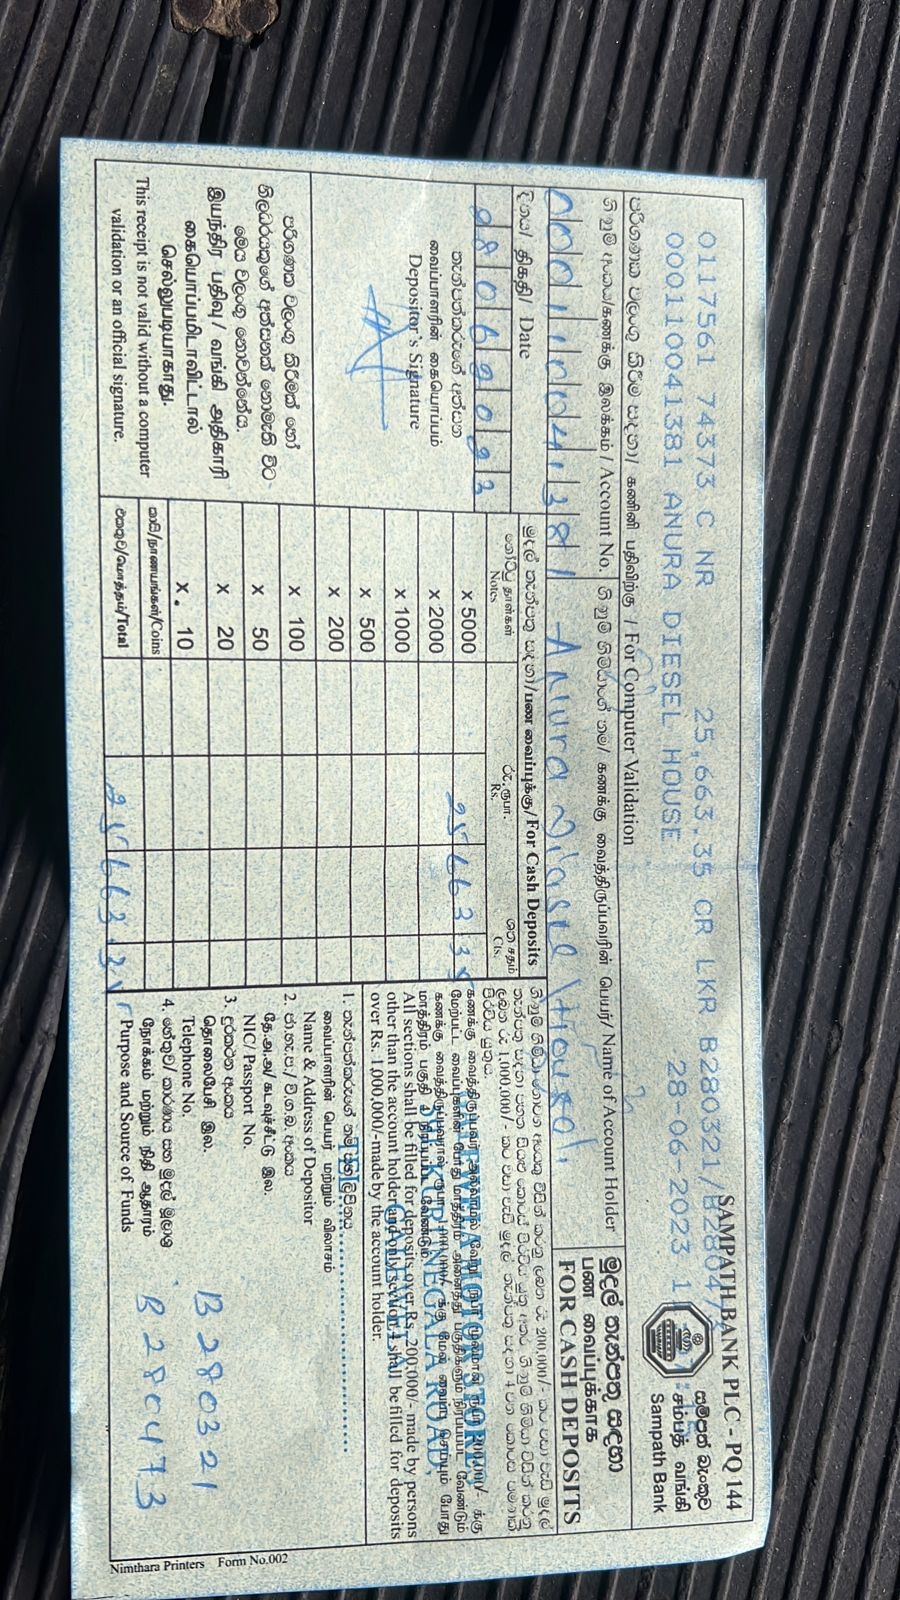 SAMPATH BANK PLC - PQ 144
0117561 74373 C NR 25,663.35 CR LKR B280321/B2804
000110041381 ANURA DIESEL HOUSE 28-06-2023 1
සම්පත් බැංකුව
சம்பத் வங்கி
Sampath Bank
පරිගණක වලංගු කිරීම සඳහා/ கணினி பதிவிற்கு / For Computer Validation
ගිණුම් අංකය/கணக்கு இலக்கம் / Account No.
ගිණුම් හිමියාගේ නම/ கணக்கு வைத்திருப்பவரின் பெயர்/ Name of Account Holder
000110041381 Anura Diesel House.
මුදල් තැන්පතු සඳහා
பண வைப்புக்காக
FOR CASH DEPOSITS
දිනය/ திகதி/ Date
28062023
තැන්පත්කරුගේ අත්සන
வைப்பாளரின் கையொப்பம்
Depositor's Signature
පරිගණක වලංගු කිරීමක් හෝ
නිලධරයකුගේ අත්සනක් නොමැති විට
මෙය වලංගු නොවන්නේය.
இயந்திர பதிவு/ வங்கி அதிகாரி
கையொப்பமிடாவிட்டால்
செல்லுபடியாகாது.
This receipt is not valid without a computer
validation or an official signature.
මුදල් තැන්පතු සඳහා/பண வைப்புக்கு/For Cash Deposits
නෝට්ටු தாள்கள்
Notes
රු. ரூபா.
Rs.
ශත சதம்
Cts.
x 5000 25663 35
x 2000
x 1000
x 500
x 200
x 100
x 50
x 20
x 10
කාසි/நாணயங்கள்/Coins
එකතුව/மொத்தம்/Total 25663.35
All sections shall be filled for deposits over Rs. 200,000/- made by persons
other than the account holder and only section 4 shall be filled for deposits
over Rs. 1,000,000/-made by the account holder.
MOTOR STORE
KURUNEGALA ROAD,
1. තැන්පත්කරුගේ නම සහ ලිපිනය
வைப்பாளரின் பெயர் மற்றும் விலாசம்
Name & Address of Depositor
2. ජා.හැ.ප/ වි.ග.බ. අංකය
தே.அ.அ/ கடவுச்சீட்டு இல.
NIC/ Passport No.
3. දුරකථන අංකය
தொலைபேசி இல.
Telephone No.
B280321
4.
நோக்கம் மற்றும் நிதி ஆதாரம்
Purpose and Source of Funds
B280473
Nimthara Printers Form No.002